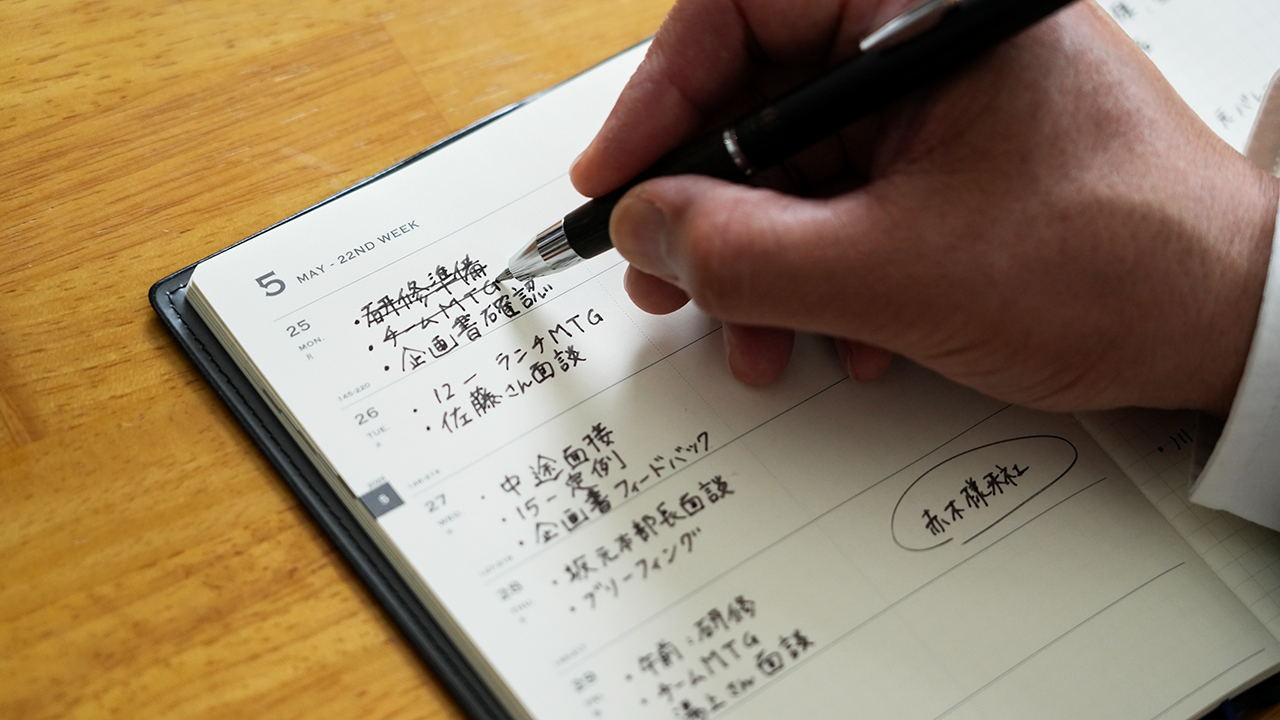 5 MAY - 22ND WEEK
25
MON.
月
・研修準備
・チームMTG
・企画書確認
145-220
26
TUE.
・12− ランチMTG
・佐藤さん面談
27
WED.
・中途面接
・15−定例
・企画書フィードバック
28
・坂元本部長面談
・ブリーフィング
赤木様来社
29
・午前:研修
・チームMTG
湯上さん面談
5